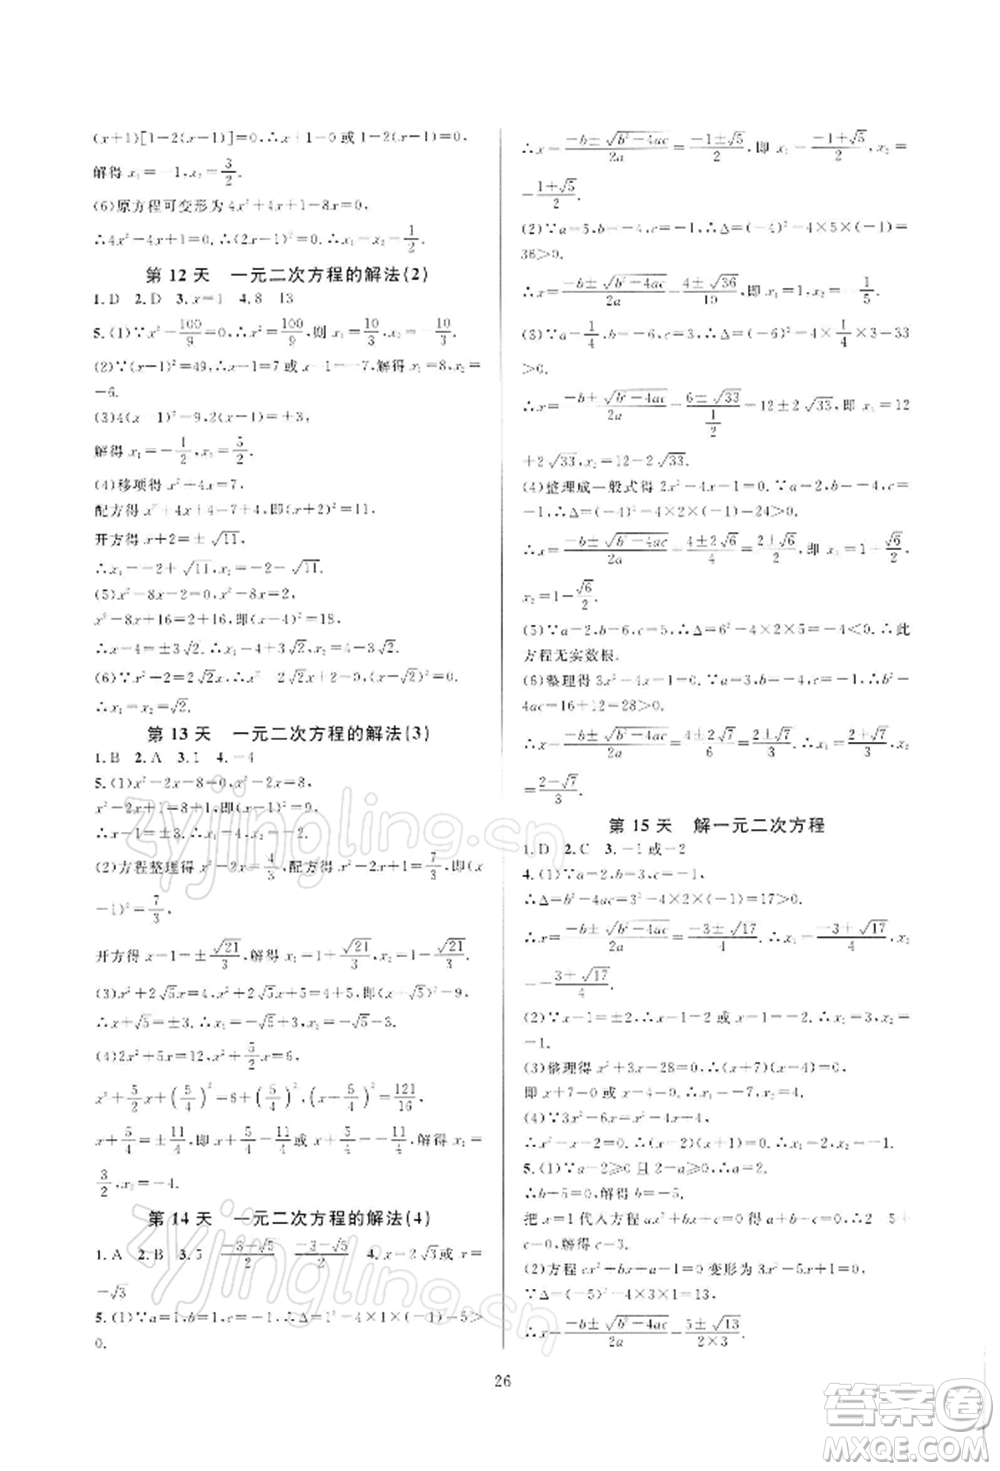 (x+1)[1-2(x-1)]=0,∴x+1=0或1-2(x-1)=0,
解得 x₁=-1,x₂=3/2.
(6)原方程可变形为 4x²+4x+1-8x=0,
∴4x²-4x+1=0.∴(2x-1)²=0.∴x₁=x₂=1/2.
第 12 天 一元二次方程的解法(2)
1.D 2.D 3.x=1 4.8 13
5.(1)∵x²-100/9=0,∴x²=100/9,则 x₁=10/3,x₂=-10/3.
(2)∵(x-1)²=49,∴x-1=±7.∴x₁=8,x₂=
-6.
(3)4(x-1)²=9,∴2(x-1)=±3,
解得 x₁=-1/2,x₂=5/2.
(4)移项得 x²+4x=7,
配方得 x²+4x+4=7+4,即(x+2)²=11,
开方得 x+2=±√11,
∴x₁=-2+√11,x₂=-2-√11.
(5)∵x²-8x-2=0,∴x²-8x=2.
x²-8x+16=2+16,即(x-4)²=18,
∴x-4=±3√2.∴x₁=4+3√2,x₂=4-3√2.
(6)∵x²+2=2√2x,∴x²-2√2x+2=0,(x-√2)²=0,
∴x₁=x₂=√2.
第 13 天 一元二次方程的解法(3)
1.B 2.A 3.1 4.-4
5.(1)x²-2x-8=0,x²-2x=8,
x²-2x+1=8+1,即(x-1)²=9,
∴x-1=±3.∴x₁=4,x₂=-2.
(2)方程整理得 x²-2x=4/3,配方得 x²-2x+1=7/3,即(x
-1)²=7/3,
开方得 x-1=±√21/3,解得 x₁=1+√21/3,x₂=1-√21/3.
(3)x²+2√5x=4,x²+2√5x+5=4+5,即(x+√5)²=9,
∴x+√5=±3.∴x₁=3-√5,x₂=-3-√5.
(4)2x²+5x-12=0,x²+5/2x=6,
x²+5/2x+(5/4)²=6+(5/4)²,(x+5/4)²=121/16,
x+5/4=±11/4,即 x+5/4=11/4或 x+5/4=-11/4,解得 x₁=
3/2,x₂=-4.
第 14 天 一元二次方程的解法(4)
1.A 2.B 3.5 (-3+√5)/2 (-3-√5)/2 4.x=2√3或 x=
-√3
5.(1)∵a=1,b=1,c=-1,∴Δ=1²-4×1×(-1)=5>
0.
∴x=(-b±√(b²-4ac))/2a=(-1±√5)/2,即 x₁=(-1+√5)/2,x₂=
-(1+√5)/2.
(2)∵a=5,b=-4,c=-1,∴Δ=(-4)²-4×5×(-1)=
36>0.
∴x=(-b±√(b²-4ac))/2a=(4±√36)/10,即 x₁=1,x₂=-1/5.
(3)∵a=1/4,b=-6,c=3,∴Δ=(-6)²-4×1/4×3=33
>0.
∴x=(-b±√(b²-4ac))/2a=(6±√33)/(1/2)=12±2√33,即 x₁=12
+2√33,x₂=12-2√33.
(4)整理成一般式得 2x²-4x-1=0.∵a=2,b=-4,c=
-1,∴Δ=(-4)²-4×2×(-1)=24>0.
∴x=(-b±√(b²-4ac))/2a=(4±2√6)/4=(2±√6)/2,即 x₁=1+√6/2,
x₂=1-√6/2.
(5)∵a=2,b=6,c=5,∴Δ=6²-4×2×5=-4<0.∴此
方程无实数根.
(6)整理得3x²-4x-1=0.∵a=3,b=-4,c=-1,∴b²-
4ac=16+12=28>0.
∴x=(-b±√(b²-4ac))/2a=(4±2√7)/6=(2±√7)/3,∴x₁=(2+√7)/3,x₂
=(2-√7)/3.
第 15 天 解一元二次方程
1.D 2.C 3.-1或-2
4.(1)∵a=2,b=3,c=-1,
∴Δ=b²-4ac=3²-4×2×(-1)=17>0.
∴x=(-b±√(b²-4ac))/2a=(-3±√17)/4.∴x₁=(-3-√17)/4,x₂=
(-3+√17)/4.
(2)∵x-1=±2,∴x-1=2或 x-1=-2,∴x₁=3,x₂=
-1.
(3)整理得 x²+3x-28=0,∴(x+7)(x-4)=0,
即 x+7=0或 x-4=0.∴x₁=-7,x₂=4.
(4)∵3x²-x²-x=4,
∴x²-x-2=0.∴(x-2)(x+1)=0.∴x₁=2,x₂=-1.
5.(1)∵a-2≥0且2-a≥0,∴a=2.
∴b+5=0,解得 b=-5.
把 x=1代入方程 ax²+bx+c=0得 a+b+c=0,即 2-5
+c=0,解得 c=3.
(2)方程 cx²-bx-a=0变形为3x²+5x-2=0,